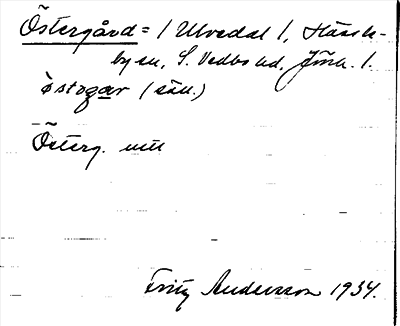 Östergård = / Ulvedal /, Hässle-
bysn, S. Vedbo hd, Jönk. l.
östogar (sän.)
Österg. mtl
Fritz Andersson 1934.